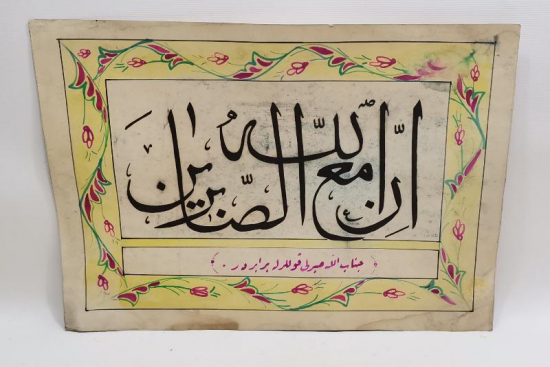 ان الله مع الصّابرين
﴿ جناب الله صبرلى قوللرله برابردر . ﴾